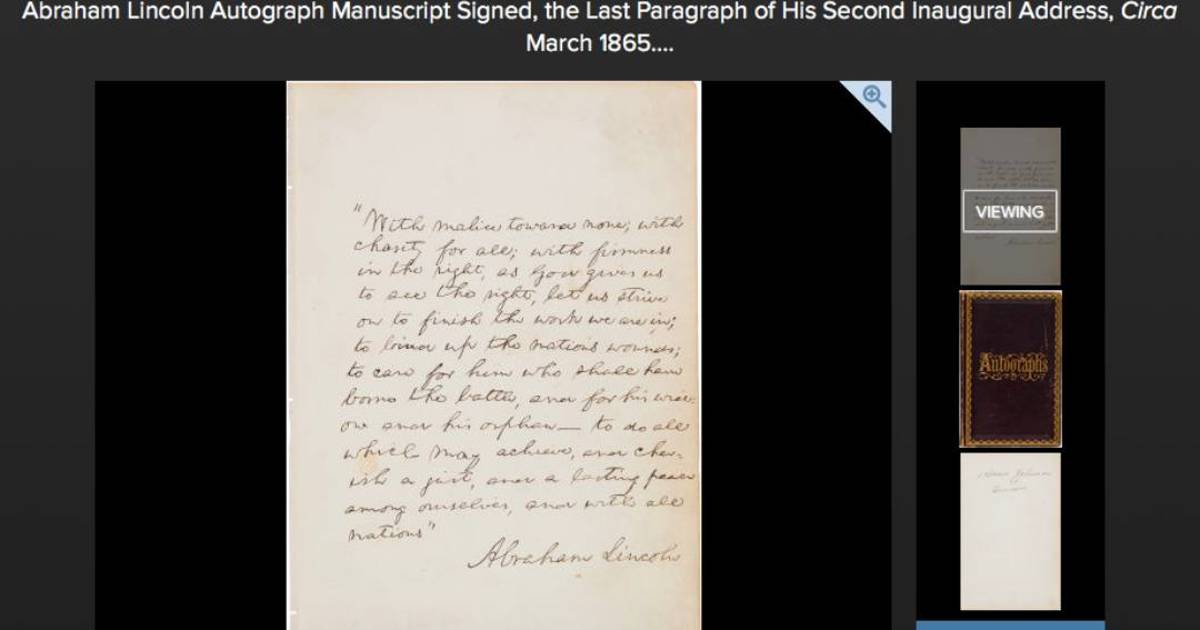 Abraham Lincoln Autograph Manuscript Signed, the Last Paragraph of His Second Inaugural Address, Circa
March 1865....
"With malice toward none; with
charity for all; with firmness
in the right, as God gives us
to see the right, let us strive
on to finish the work we are in;
to bind up the nations wounds;
to care for him who shall have
borne the battle, and for his wid-
ow and his orphan— to do all
which may achieve, and cher-
ish a just, and a lasting peace
among ourselves, and with all
nations"
Abraham Lincoln
VIEWING
Autographs